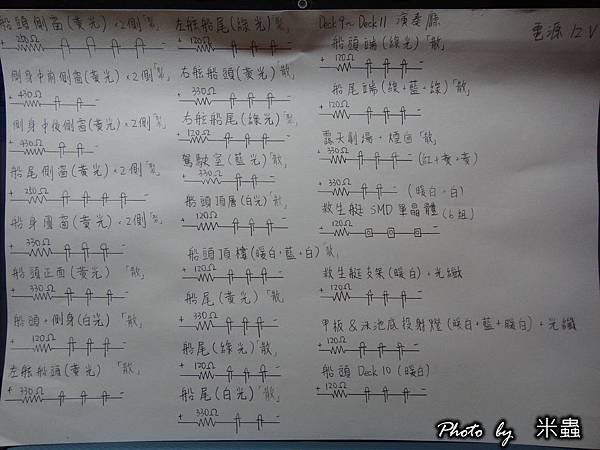 船頭側窗(黃光)×2側「聚」
+ 250Ω -
側身中前側窗(黃光)×2側「聚」
+ 430Ω -
側身中後側窗(黃光)×2側「聚」
+ 430Ω -
船尾側窗(黃光)×2側「聚」
+ 250Ω -
船身圓窗(黃光)×2側「聚」
+ 330Ω -
船頭正面(黃光) 「散」
+ 330Ω -
船頭+側身(白光) 「散」
+ 120Ω -
左舷船頭(黃光) 「散」
+ 330Ω -
左舷船尾(綠光)「聚」
+ 120Ω -
右舷船頭(黃光)「散」
330Ω
右舷船尾(綠光)「聚」
120Ω
駕駛室(藍光)「散」
330Ω -
船頭頂層(白光)「散」
120Ω
船頭頂樓(暖白+藍+白)「散」
+ 120Ω -
船尾(黃光)「散」
330Ω -
船尾(綠光)「散」
120Ω -
船尾(白光)「散」
330Ω -
Deck9~Deck11 演奏廳
船頭端(綠光)「散」
+ 120Ω -
船尾端(綠+藍+綠)「散」
+ 120Ω -
露天劇場+煙囪「散」
+ 330Ω - (紅+黃+黃)
+ 330Ω - (暖白+白)
救生艇 SMD 單晶體 (6組)
+ 120Ω -
救生艇支架(暖白)+光纖
+ 120Ω -
甲板&泳池底投射燈(暖白+藍+暖白)+光纖
+ 120Ω -
船頭 Deck 10 (暖白)
+ 120Ω -
電源 12V
Photo by 米蟲